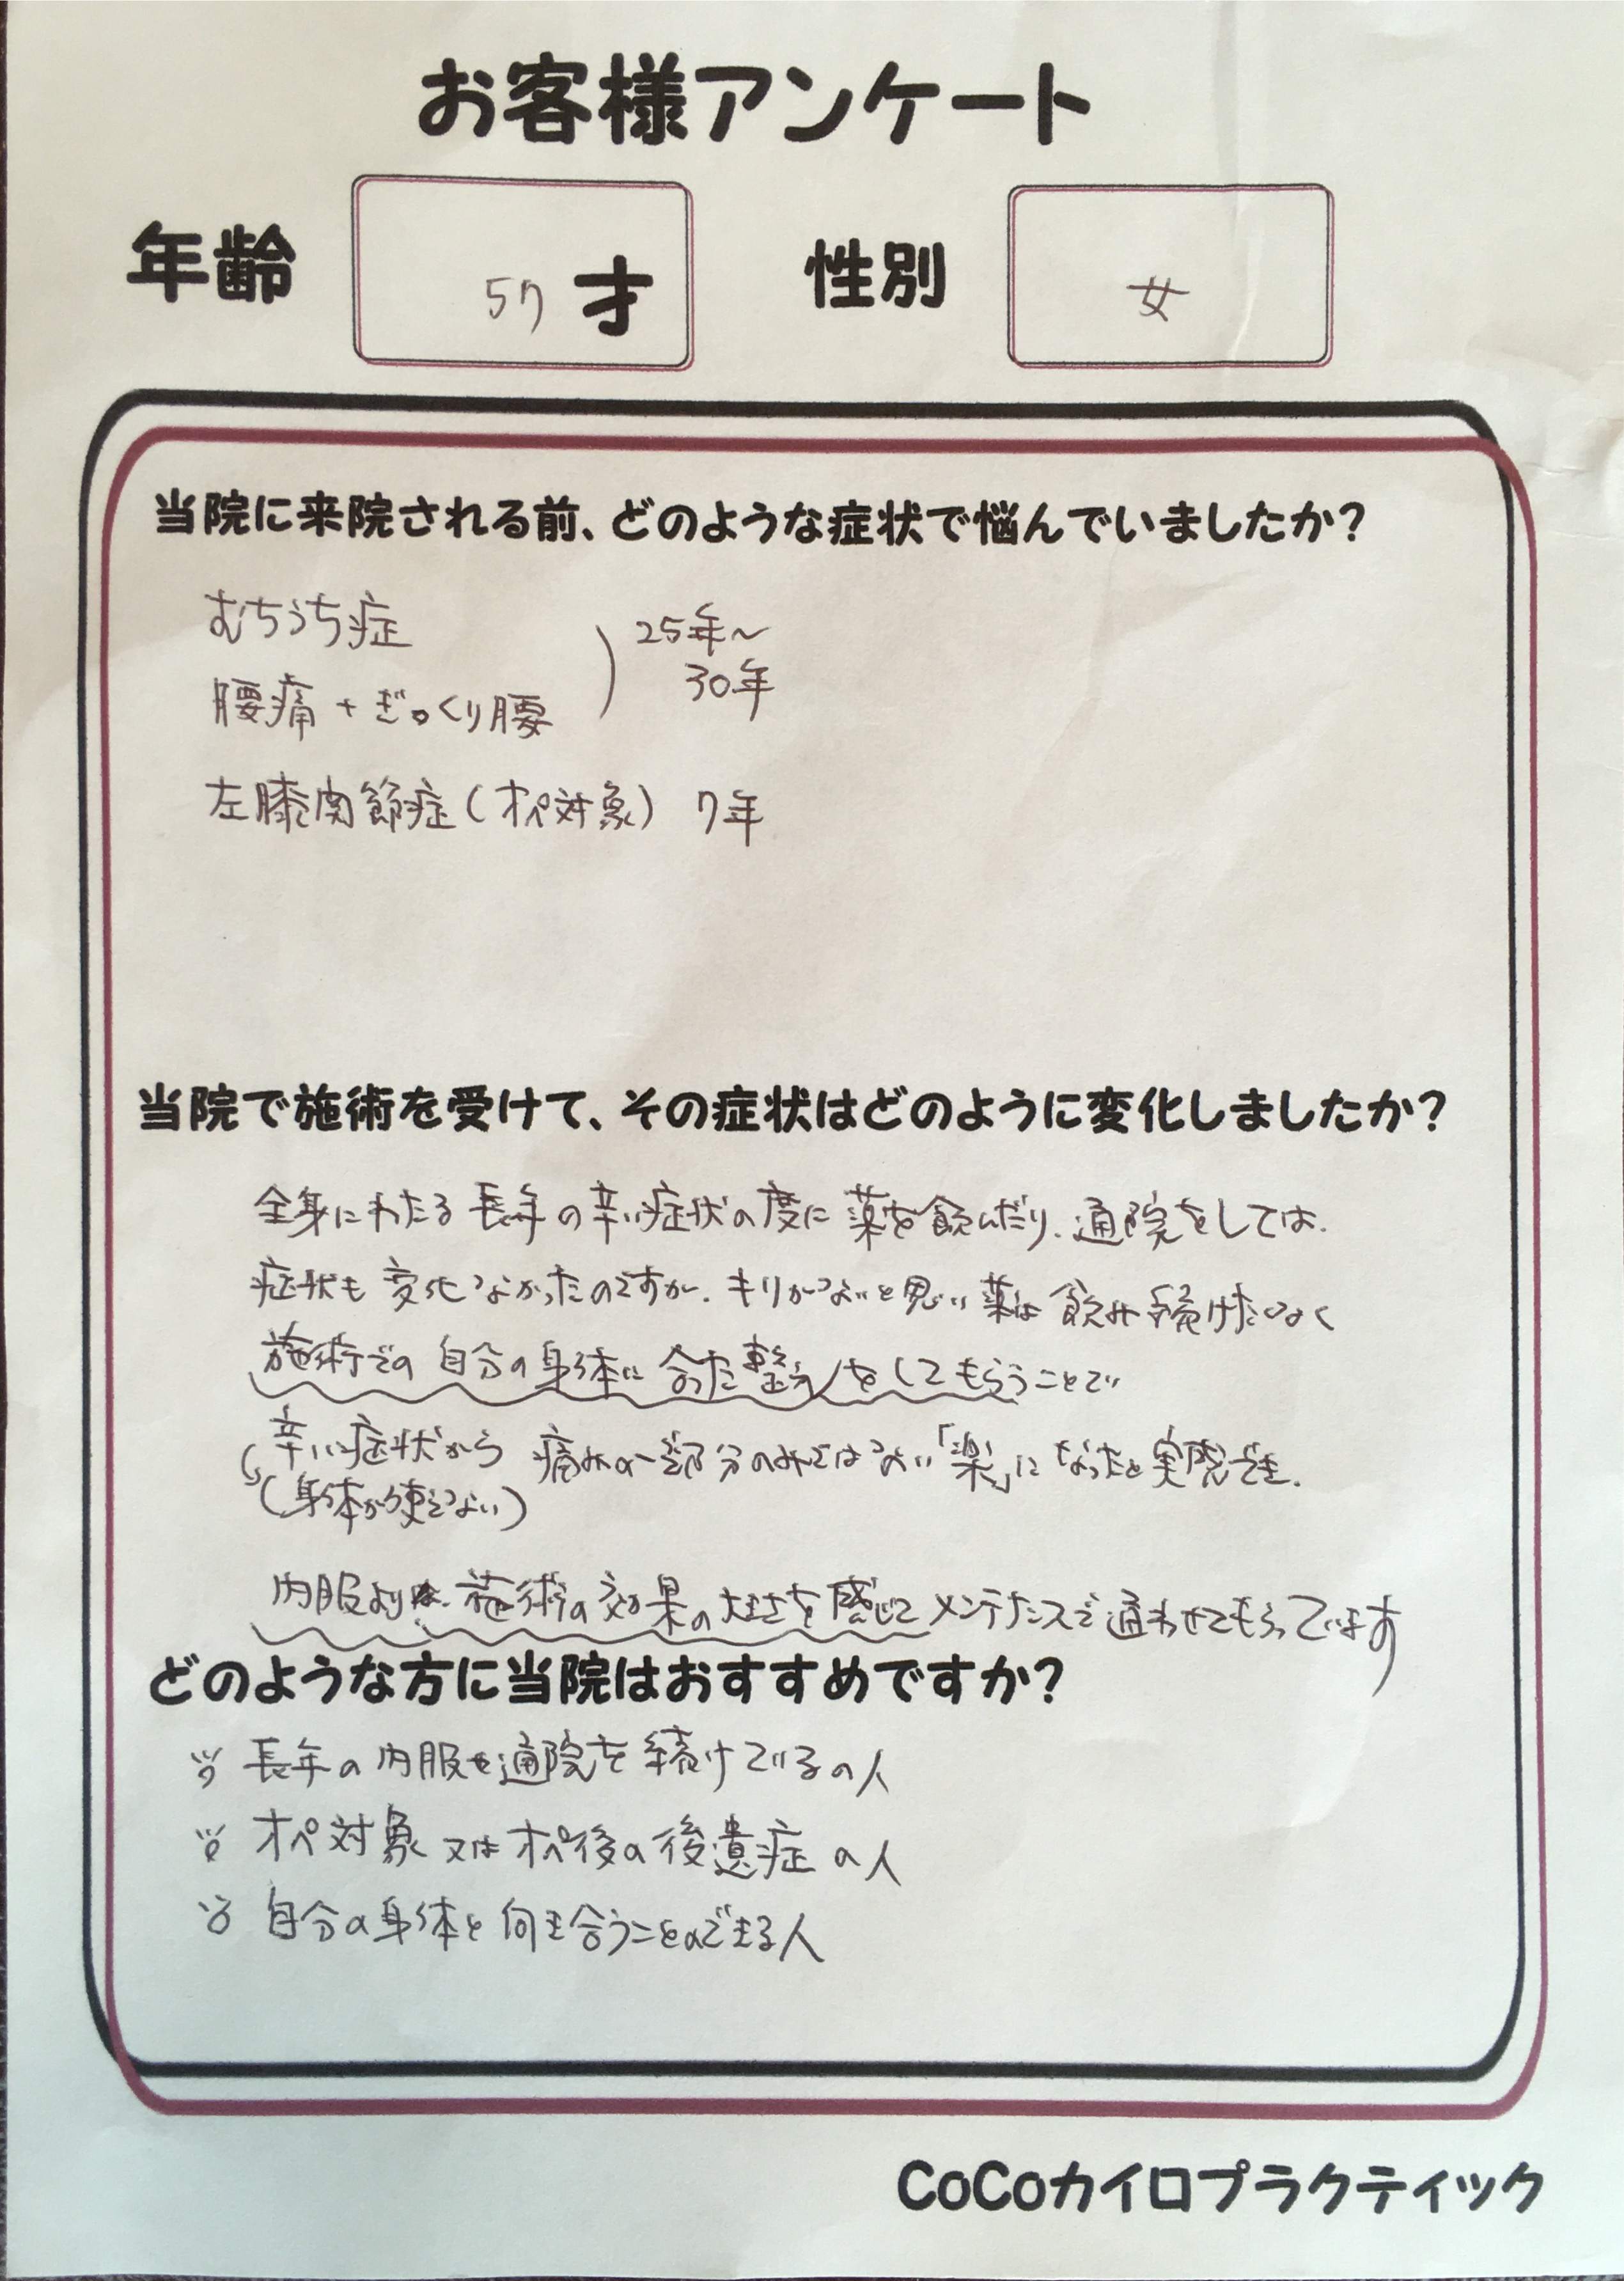 お客様アンケート
年齢 57才 性別 女
当院に来院される前、どのような症状で悩んでいましたか?
むちうち症
腰痛+ぎっくり腰
25年〜
30年
左膝関節症(オペ対象) 7年
当院で施術を受けて、その症状はどのように変化しましたか?
全身にわたる長年の辛い症状の度に薬を飲んだり、通院をしては、
症状も変化なかったのですが、キリがないと思い薬は飲み続けたくなく
施術での自分の身体に合った整体をしてもらうことで
辛い症状から 痛みの一部分のみではない「楽」になったと実感でき、
(身体が使えない)
内服よりは、施術の効果の大きさを感じてメンテナンスで通わせてもらっています
どのような方に当院はおすすめですか?
長年の内服や通院を続けているの人
オペ対象又はオペ後の後遺症の人
自分の身体と向き合うことのできる人
CoCoカイロプラクティック